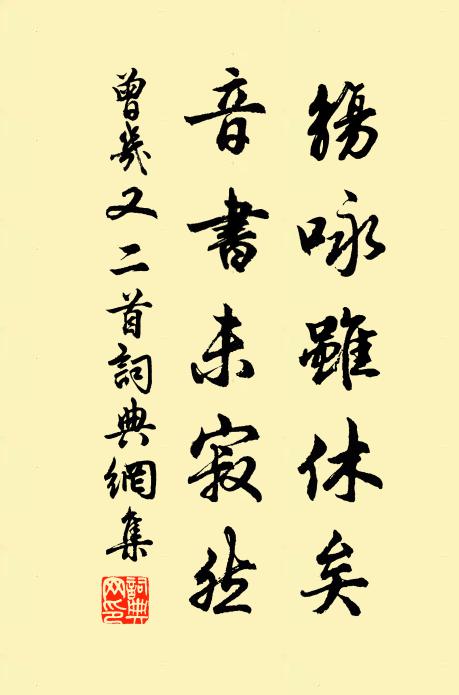 觴咏雖休矣
音書未寂然
曾幾又二首詞典網集
詞典網印